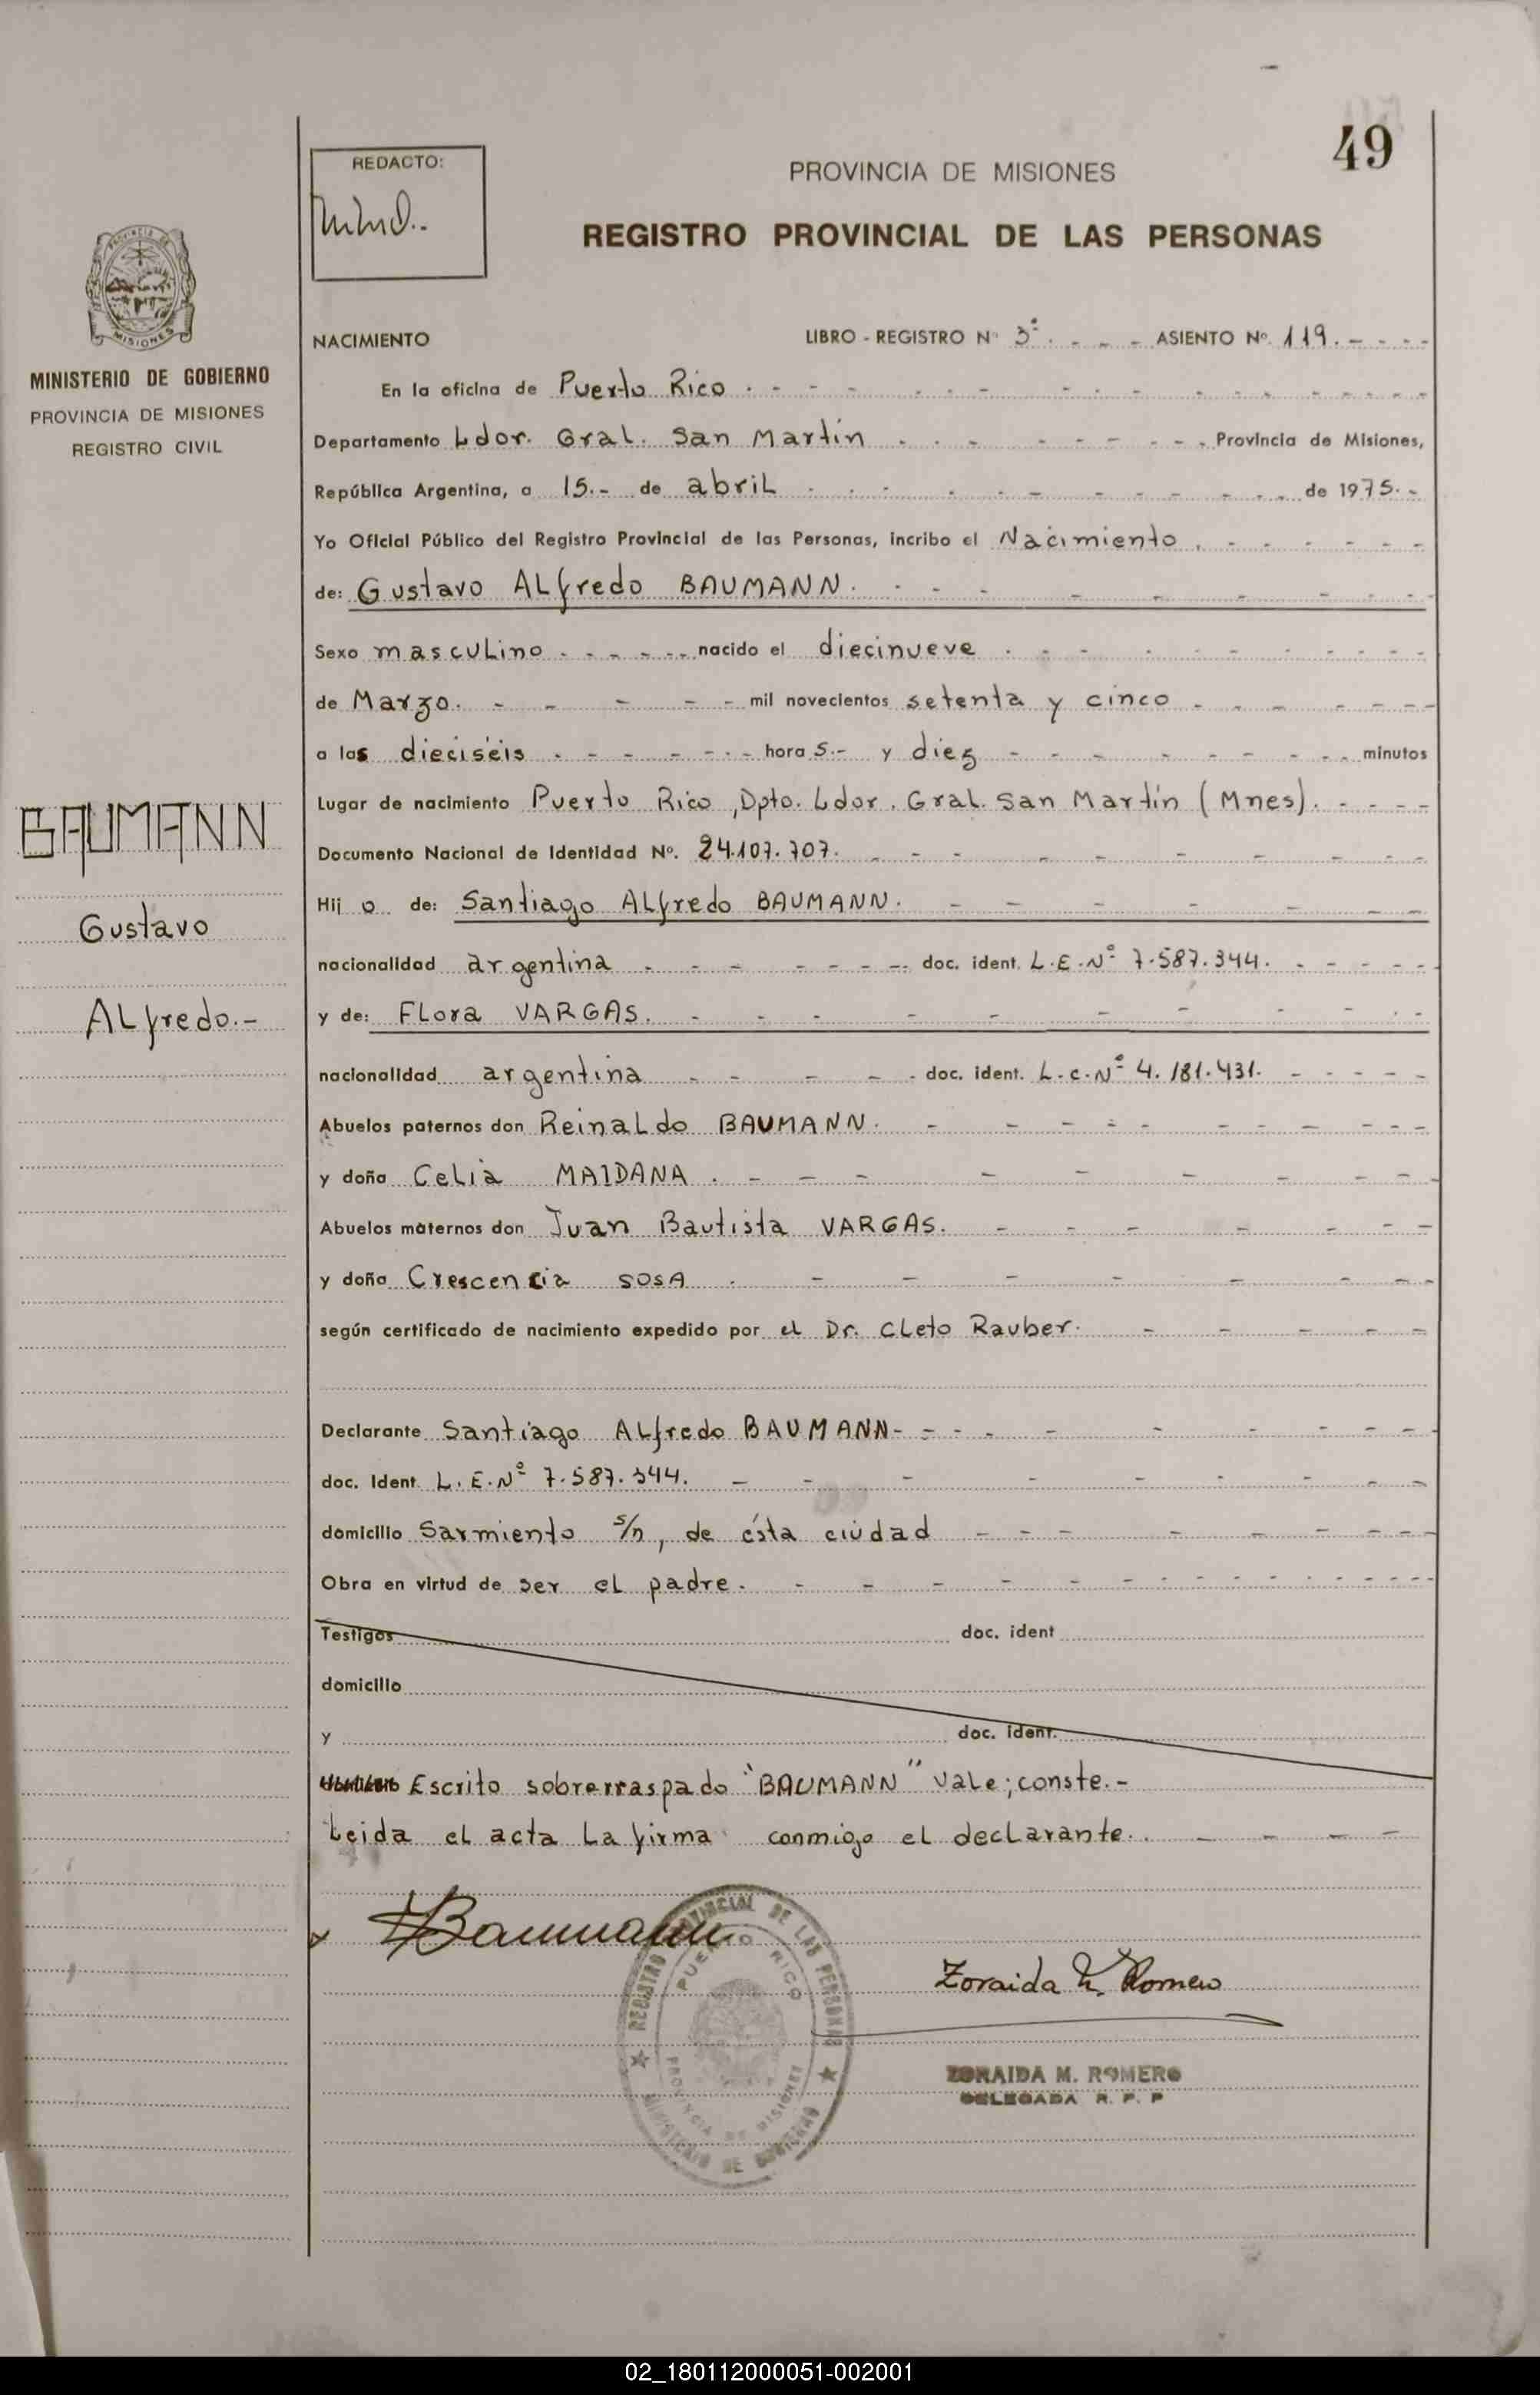 49
REDACTO:
PROVINCIA DE MISIONES
REGISTRO PROVINCIAL DE LAS PERSONAS
PROVINCIA DE MISIONES
MINISTERIO DE GOBIERNO
PROVINCIA DE MISIONES
REGISTRO CIVIL
BAUMANN
Gustavo
Alfredo.-
NACIMIENTO LIBRO - REGISTRO Nº 3º. - - - ASIENTO Nº. 119. - - - -
En la oficina de Puerto Rico. - - -
Departamento Ldor. Gral. San Martín - - - Provincia de Misiones,
República Argentina, a 15.- de abril - - - de 1975.-
Yo Oficial Público del Registro Provincial de las Personas, incribo el Nacimiento. - - -
de: Gustavo Alfredo BAUMANN. - - -
Sexo masculino - - - nacido el diecinueve - - -
de Marzo. - - - mil novecientos setenta y cinco - - -
a las dieciséis - - - hora s.- y diez - - - minutos
Lugar de nacimiento Puerto Rico, Dpto. Ldor. Gral. San Martín (Mnes). - - - -
Documento Nacional de Identidad Nº. 24.107.707. - - -
Hij o de: Santiago Alfredo BAUMANN. - - -
nacionalidad argentina - - - doc. ident. L.E.Nº 7.587.344. - - -
y de: Flora VARGAS. - - -
nacionalidad argentina - - - doc. ident. L.C.Nº 4.181.431. - - -
Abuelos paternos don Reinaldo BAUMANN. - - -
y doña Celia MAIDANA. - - -
Abuelos maternos don Juan Bautista VARGAS. - - -
y doña Crescencia SOSA. - - -
según certificado de nacimiento expedido por el Dr. Cleto Rauber. - - -
Declarante Santiago Alfredo BAUMANN- - - -
doc. Ident. L.E.Nº 7.587.344. - - -
domicilio Sarmiento s/n, de ésta ciudad - - -
Obra en virtud de ser el padre. - - -
Testigos doc. ident
domicilio
y doc. ident.
Escrito sobrerraspado "BAUMANN" Vale; conste.-
Leida el acta la firma conmigo el declarante. - - -
Baumann
REGISTRO PROVINCIAL DE LAS PERSONAS
PUERTO RICO
PROVINCIA DE MISIONES
MINISTERIO DE GOBIERNO
Zoraida M. Romero
ZORAIDA M. ROMERO
DELEGADA R. P. P
02_180112000051-002001